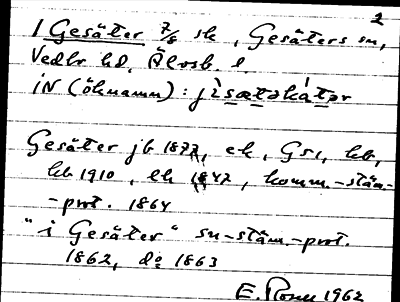 2
1 Gesäter 7/8 sk, Gesäters sn,
Vedbo hd, Älvsb. l.
iN (öknamn): jɩ̀sætəkátər
Gesäter jb 1877, ek, Gs1, kb,
hb 1910, lk 1847, komm.-stäm-
-prot. 1864
"i Gesäter" sn-stäm.-prot.
1862, do 1863
E. Rosn 1962